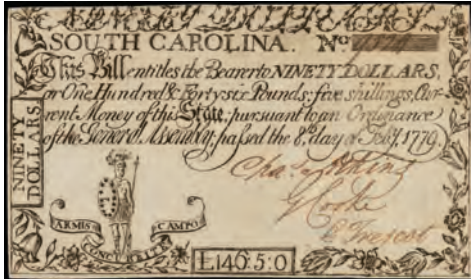 SOUTH CAROLINA. No
This Bill entitles the Bearer to NINETY DOLLARS,
or One Hundred & Forty six Pounds; five shillings, Cur-
rent Money of this State; pursuant to an Ordinance
of the General Assembly, passed the 8th day of Feby. 1779.
NINETY
DOLLARS
Chas. Atkins
G Cooke
ARMIS
CAMPO
£146:5:0